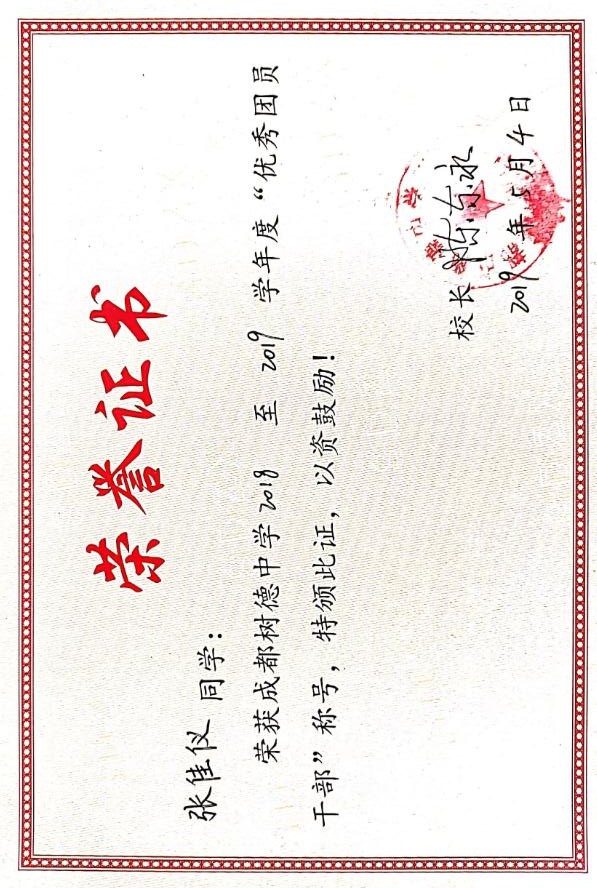 荣誉证书
张佳仪 同学：
荣获成都树德中学2018 至 2019 学年度“优秀团员
干部”称号，特颁此证，以资鼓励！
校长 陈东永
2019 年 5 月 4 日